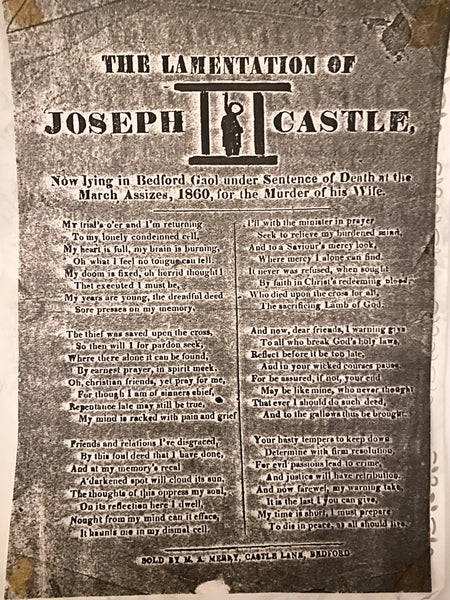 THE LAMENTATION OF
JOSEPH CASTLE,
Now lying in Bedford Gaol under Sentence of Death at the
March Assizes, 1860, for the Murder of his Wife.
MY trial's o'er and I'm returning
To my lonely condemned cell,
My heart is full, my brain is burning,
Oh what I feel no tongue can tell.
My doom is fixed, oh horrid thought!
That executed I must be,
My years are young, the dreadful deed
Sore presses on my memory.
The thief was saved upon the cross,
So then will I for pardon seek,
Where there alone it can be found,
By earnest prayer, in spirit meek.
Oh, christian friends, yet pray for me,
For though I am of sinners chief,
Repentance late may still be true,
My mind is racked with pain and grief
Friends and relations I've disgraced,
By this foul deed that I have done,
And at my memory's recal
A darkened spot will cloud its sun,
The thoughts of this oppress my soul,
On its reflection here I dwell,
Nought from my mind can it efface,
It haunts me in my dismal cell.
I'll with the minister in prayer
Seek to relieve my burdened mind,
And to a Saviour's mercy look,
Where mercy I alone can find.
It never was refused, when sought
By faith in Christ's redeeming blood,
Who died upon the cross for all,
The sacrificing Lamb of God.
And now, dear friends, I warning give
To all who break God's holy laws,
Reflect before it be too late,
And in your wicked courses pause.
For be assured, if not, your end
May be like mine, who never thought
That ever I should do such deed,
And to the gallows thus be brought.
Your hasty tempers to keep down
Determine with firm resolution,
For evil passions lead to crime,
And justice will have retribution.
And now farewel, my warning take,
It is the last I you can give,
My time is short, I must prepare
To die in peace, as all should live.
SOLD BY M. A. MERRY, CASTLE LANE, BEDFORD